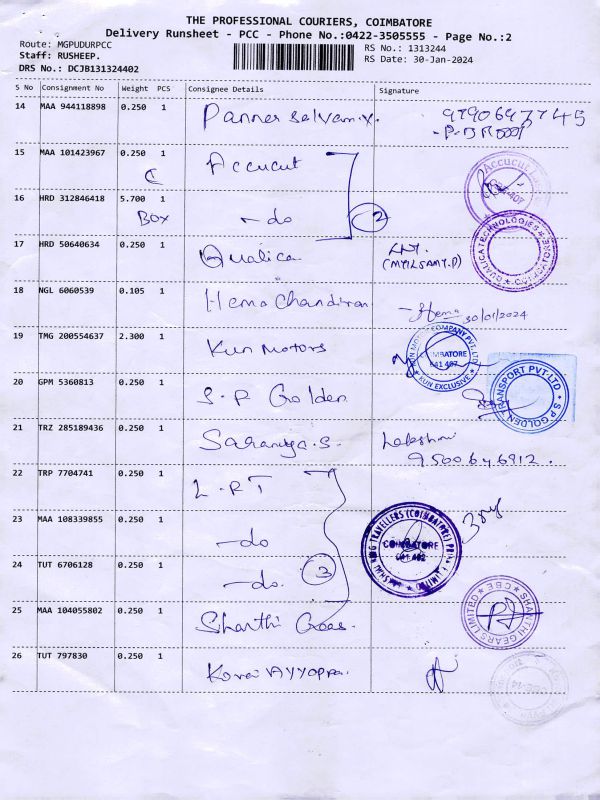 THE PROFESSIONAL COURIERS, COIMBATORE
Delivery Runsheet - PCC - Phone No.:0422-3505555 - Page No.:2
Route: MGPUDURPCC
Staff: RUSHEEP.
DRS No.: DCJB131324402
RS No.: 1313244
RS Date: 30-Jan-2024
S No Consignment No Weight PCS Consignee Details Signature
14 MAA 944118898 0.250 1 Panner Selvam.v. 9790697745
15 MAA 101423967 0.250 1 Accucut
C
16 HRD 312846418 5.700 1 - do 2
BOX
17 HRD 50640634 0.250 1 Qualica
(MYILSAMY.P)
QUALICA TECHNOLOGIES
18 NGL 6060539 0.105 1 Hema Chandiran. Hema 30/01/2024
19 TMG 200554637 2.300 1 Kun Motors
KUN MOTOR COMPANY PVT. LTD. COIMBATORE 641 407 KUN EXCLUSIVE
20 GPM 5360813 0.250 1 S.P Golden
S P GOLDEN TRANSPORT PVT.LTD
21 TRZ 285189436 0.250 1 Saranya.S. Lakshmi
9500646912.
22 TRP 7704741 0.250 1 L.R T
23 MAA 108339855 0.250 1 - do
COIMBATORE
24 TUT 6706128 0.250 1 - do. 3
25 MAA 104055802 0.250 1 Shanthi Gears.
SHANTHI GEARS LIMITED CBE
26 TUT 797830 0.250 1 Kovai Ayyappa.